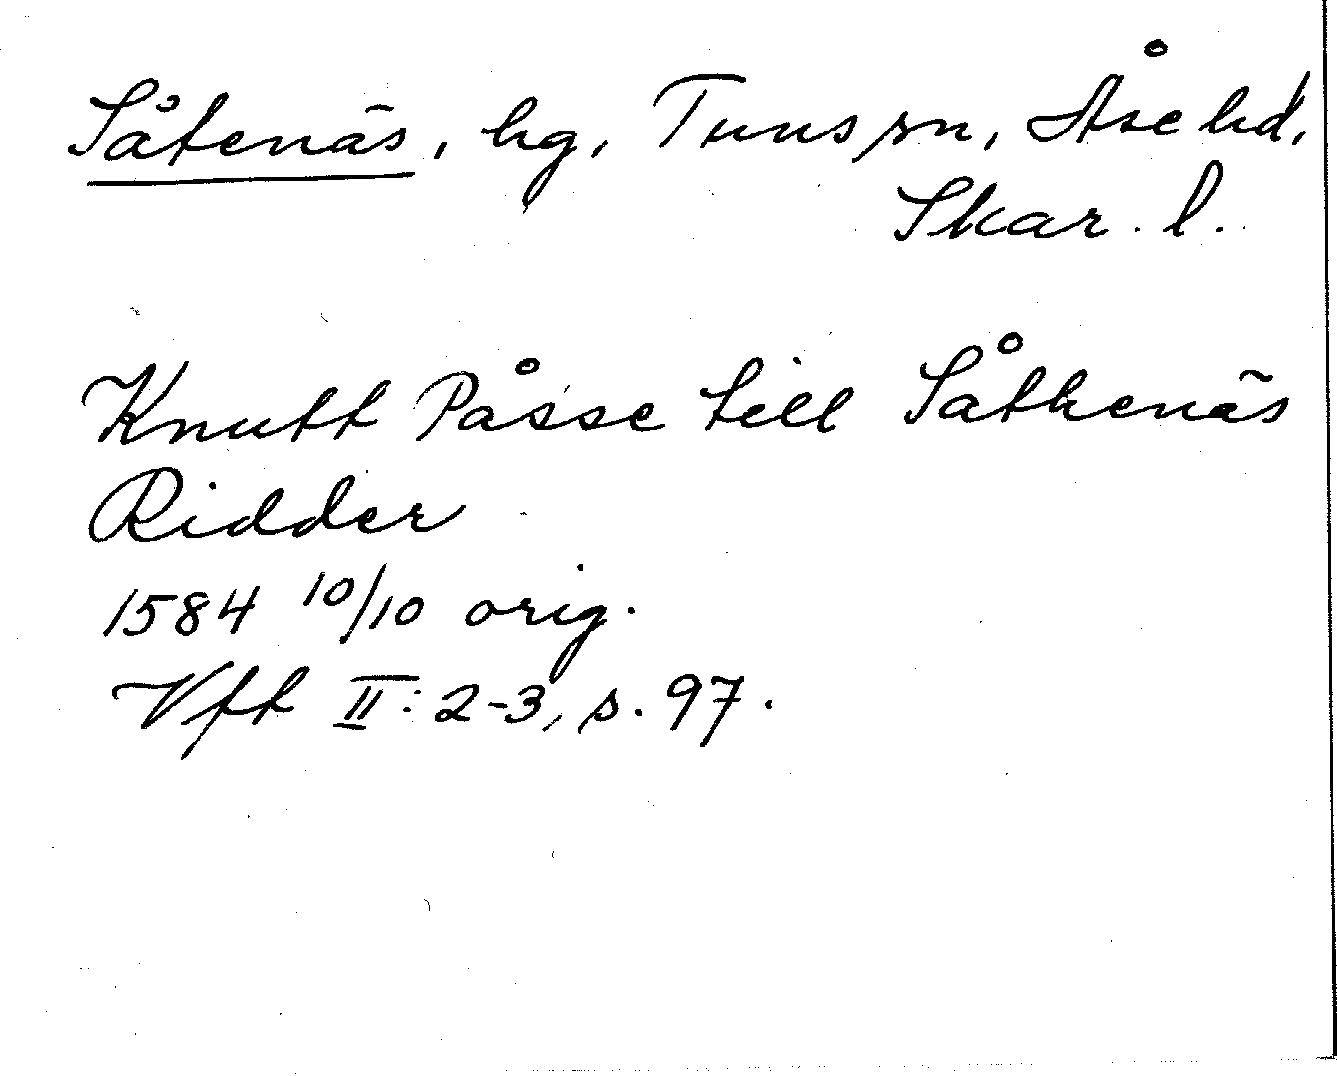 Såtenäs, hg, Tuns sn, Åse hd,
Skar. l.
Knutt Påsse till Såthenäs
Ridder
1584 10/10 orig.
Vft II: 2-3, s. 97.